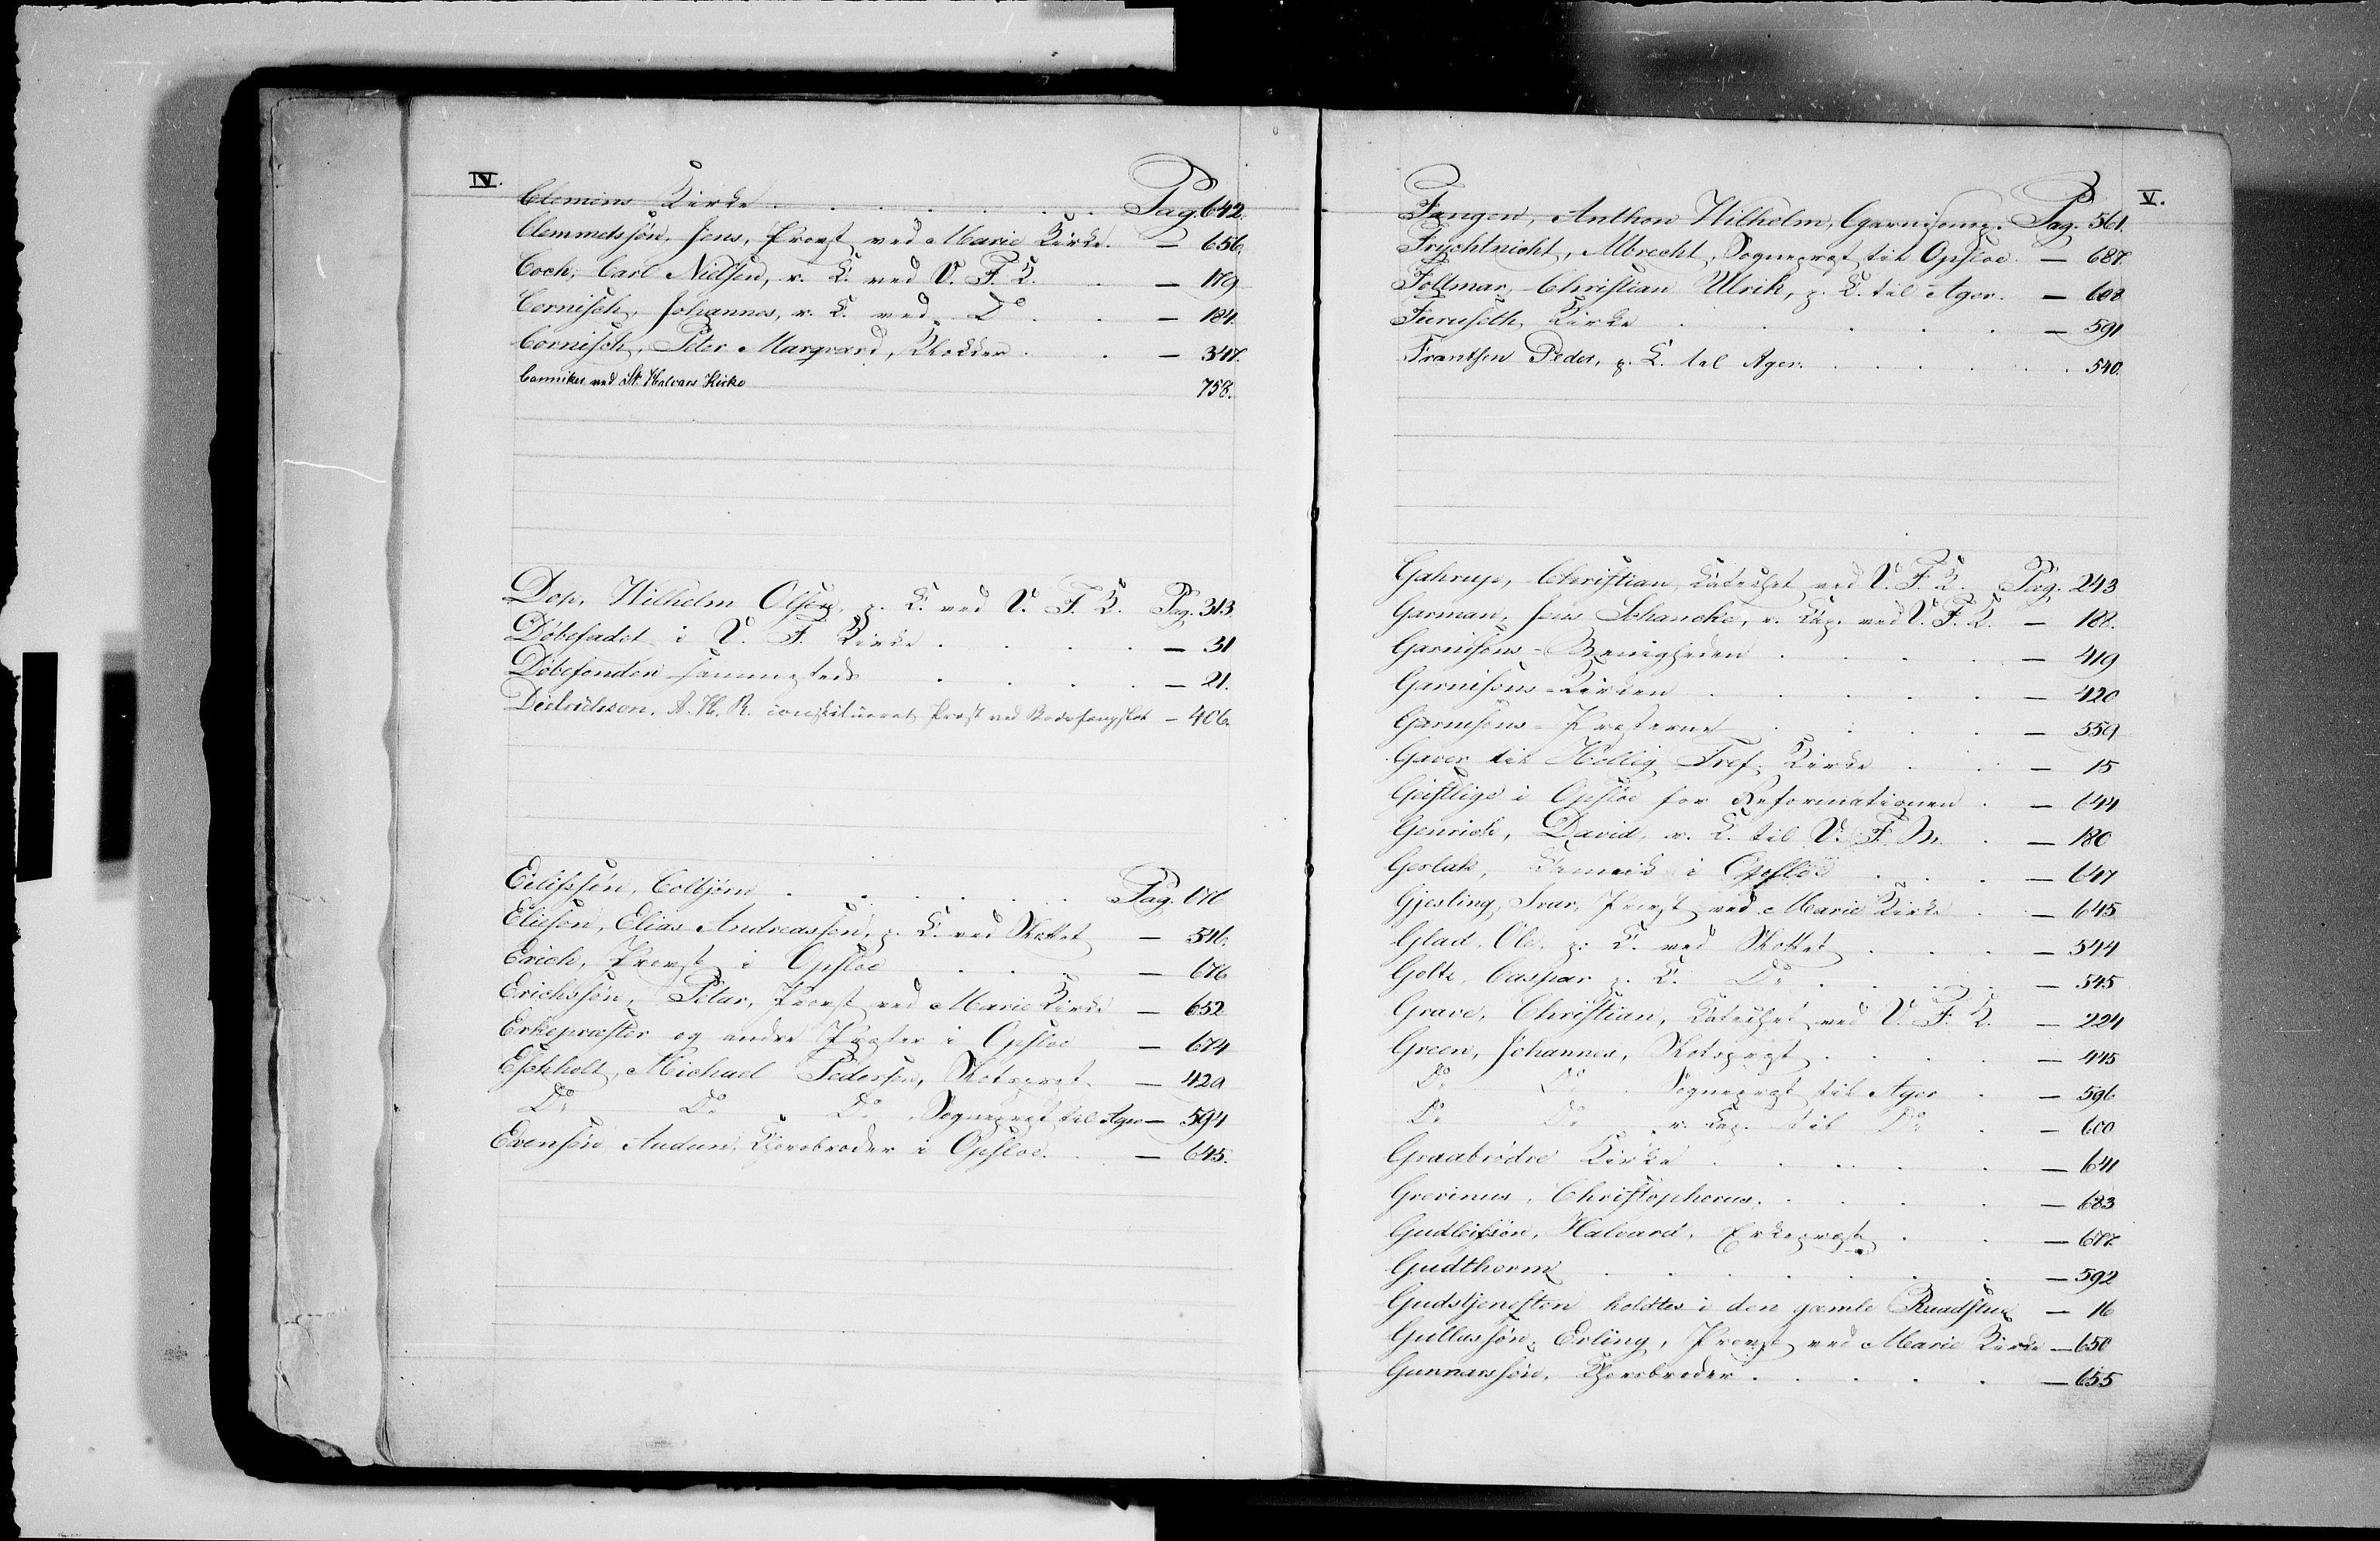 IV.
Clemens Kirke . . . . . . . Pag. 642.
Clemmetssön, Jens, Provst ved Marie Kirke. — 656.
Coch, Carl Nielsen, r. K. ved V. F. K. . — 179
Cornisch, Johannes, r. K. ved Do . . — 184.
Cornisch, Peter Marqvard, Klokker . . — 347.
Canniker ved St. Halvars Kirke 758.
Dop, Wilhelm Olsen, p. K. ved V. F. K. Pag. 313.
Döbefadet i V. F. Kirke . . . . — 31
Döbefonden sammesteds . . . . — 21.
Diedrichson, A. H. R. constitueret Præst ved Bodsfængslet — 406.
Eilifssön, Colbjörn . . . . . . Pag. 676
Elieson, Elias Andreassen, p. K. ved Slottet — 546.
Erich, Provst i Opsloe . . . — 676
Erichssön, Petar, Provst ved Marie Kirke — 652
Erkepræster og andre Præster i Opsloe — 674
Eschholt, Michael Pedersen, Slotspræst — 429
Do Do Do Sognepræst til Ager — 594
Evensön Audun, Chorsbroder i Opsloe. . — 645.
V.
Fangen, Anthon Wilhelm, Garnisonsp. Pag. 561.
Frychtnicht, Albrecht, Sognepræst til Opsloe. — 687.
Follmar, Christian Ulrik, p. K. til Ager. — 608
Furuseth Kirke . . . . . — 591
Frantsen Peder, p. K. til Ager. . . . . . 540.
Gahrup, Christian, Katechet ved V. F. K. Pag. 243
Garman, Jens Schancke, r. Kap. ved V. F. K. — 188.
Garnisons-Menigheden . . . . — 419
Garnisons-Kirken . . . . . — 420
Garnisons-Præsterne . . . . — 559
Gaver til Hellig Tref. Kirke . . — 15
Geistlige i Opsloe for Reformationen . — 644
Genrich, David, r. K. til V. F. M. . — 180
Gerlak, Kannik i Opsloe . . . — 647
Gjesling, Ivar, Provst ved Marie Kirke . — 645
Glad, Ole, p. K. ved Slottet . . . — 544
Golti, Caspar p. K. Do . . . . — 545
Grave, Christian, Katechet ved V. F. K. — 224
Green, Johannes, Slotspræst . . . . — 445
Do Do Sognepræst til Ager . — 596
Do Do r. Kap. til Do . — 600
Graabrödre Kirke . . . . . — 641
Grevinus, Christophorus. . . . . — 683
Gudleiksön, Halvard, Erkepræst . . — 677
Gudthorm . . . . . . — 592
Gudstjenesten holdtes i den gamle Raadstue — 16
Gullassön, Erling, Provst ved Marie Kirke — 650
Gunnarssön, Chorsbroder . . . . . — 655